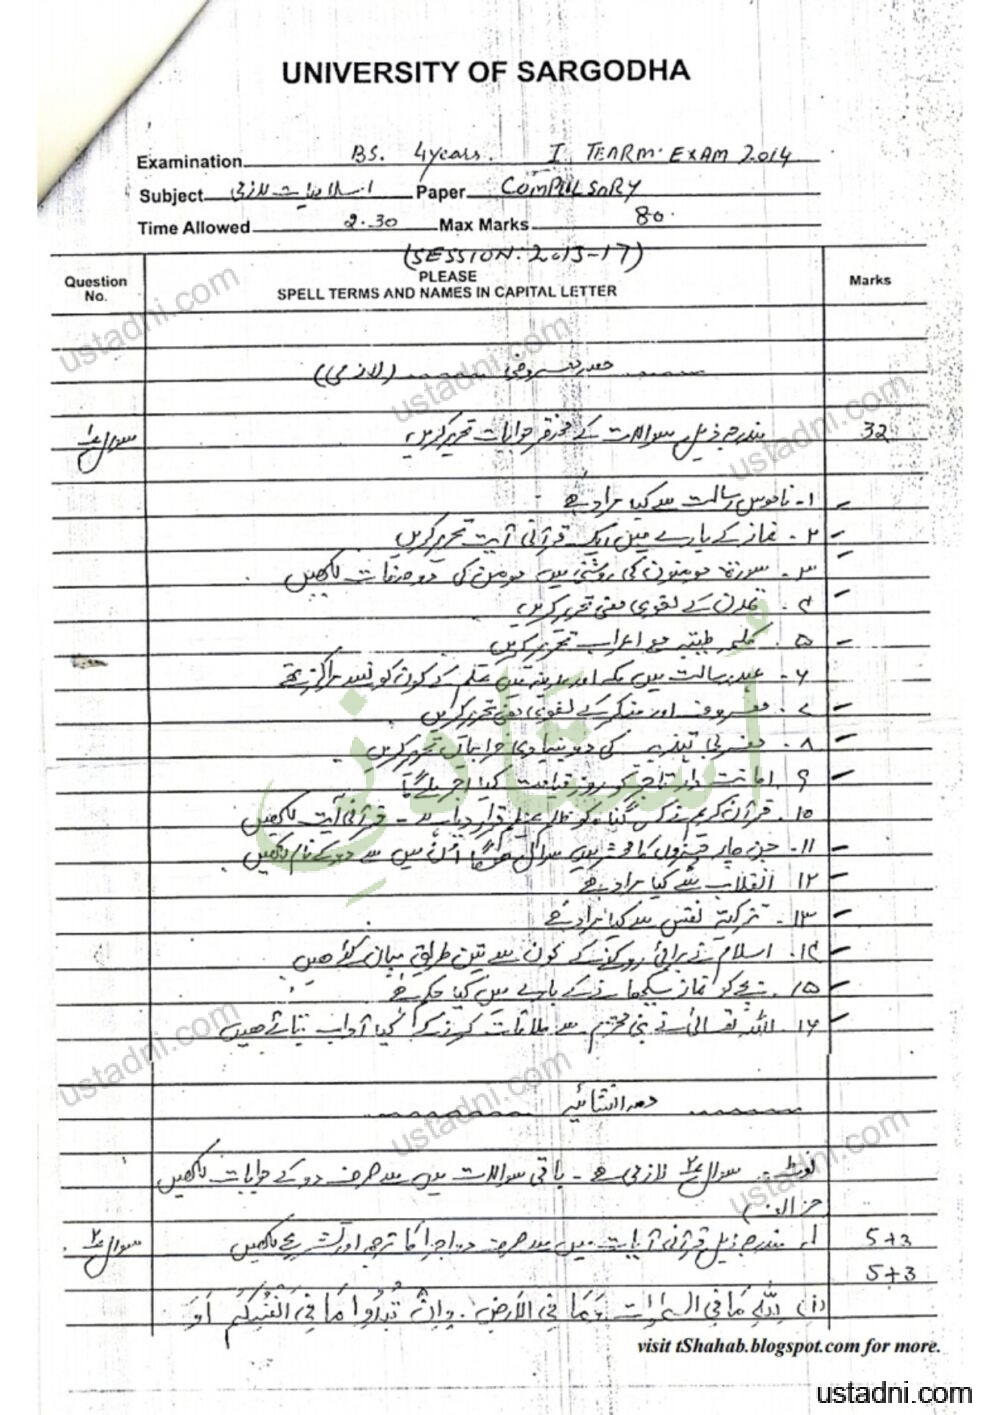 UNIVERSITY OF SARGODHA
Examination BS. 4 years. I TEARM. EXAM 2014
Subject اسلامیات لازمی Paper COMPULSORY
Time Allowed 2.30 Max Marks 80.
(SESSION. 2013-17)
Question No. PLEASE SPELL TERMS AND NAMES IN CAPITAL LETTER Marks
حصہ معروضی (لازمی)
سوال ۱ مندرجہ ذیل سوالات کے مختصر جوابات تحریر کریں 32
۱- ناموس رسالت سے کیا مراد ہے
۲- نماز کے بارے میں ایک قرآنی آیت تحریر کریں
۳- سورۃ مومنون کی روشنی میں مومن کی دو صفات لکھیں
۴- تمدن کے لغوی معنی تحریر کریں
۵- کلمہ طیبہ مع اعراب تحریر کریں
۶- عہد رسالت میں مکے اور مدینہ میں علم کے کون کونسے مراکز تھے
۷- معروف اور منکر کے لغوی معنی تحریر کریں
۸- مغربی تہذیب کی دو بنیادی خرابیاں تحریر کریں
۹- امانت دار تاجر کو روز قیامت کیا اجر ملے گا
۱۰- قرآن کریم نے کس گناہ کو ظلم عظیم قرار دیا ہے - قرآنی آیت لکھیں
۱۱- جن چار چیزوں کا محشر میں سوال ہوگا ان میں سے دو کے نام لکھیں
۱۲- انقلاب سے کیا مراد ہے
۱۳- تزکیۂ نفس سے کیا مراد ہے
۱۴- اسلام نے برائی روکنے کے کون سے تین طریق بیان کئے ہیں
۱۵- بچے کو نماز سکھانے کے بارے میں کیا حکم ہے
۱۶- اللہ تعالیٰ نے نبی محترم سے ملاقات کرنے کے کیا آداب بتائے ہیں
حصہ انشائیہ
نوٹ - سوال ۲ لازمی ہے - باقی سوالات میں سے صرف دو کے جوابات لکھیں
سوال ۲ مندرجہ ذیل قرآنی آیات میں سے صرف دو اجزا کا ترجمہ اور تشریح لکھیں 5+3
5+3
(i) لِلّٰهِ مَا فِی السمٰوٰت وَمَا فِی الْاَرْضِ . وَاِنْ تُبْدُوا مَا فِی اَنْفُسِکُم اَوْ
visit tShahab.blogspot.com for more.
ustadni.com
ustadni.com
ustadni.com
ustadni.com
ustadni.com
ustadni.com
ustadni.com
اُستادنی